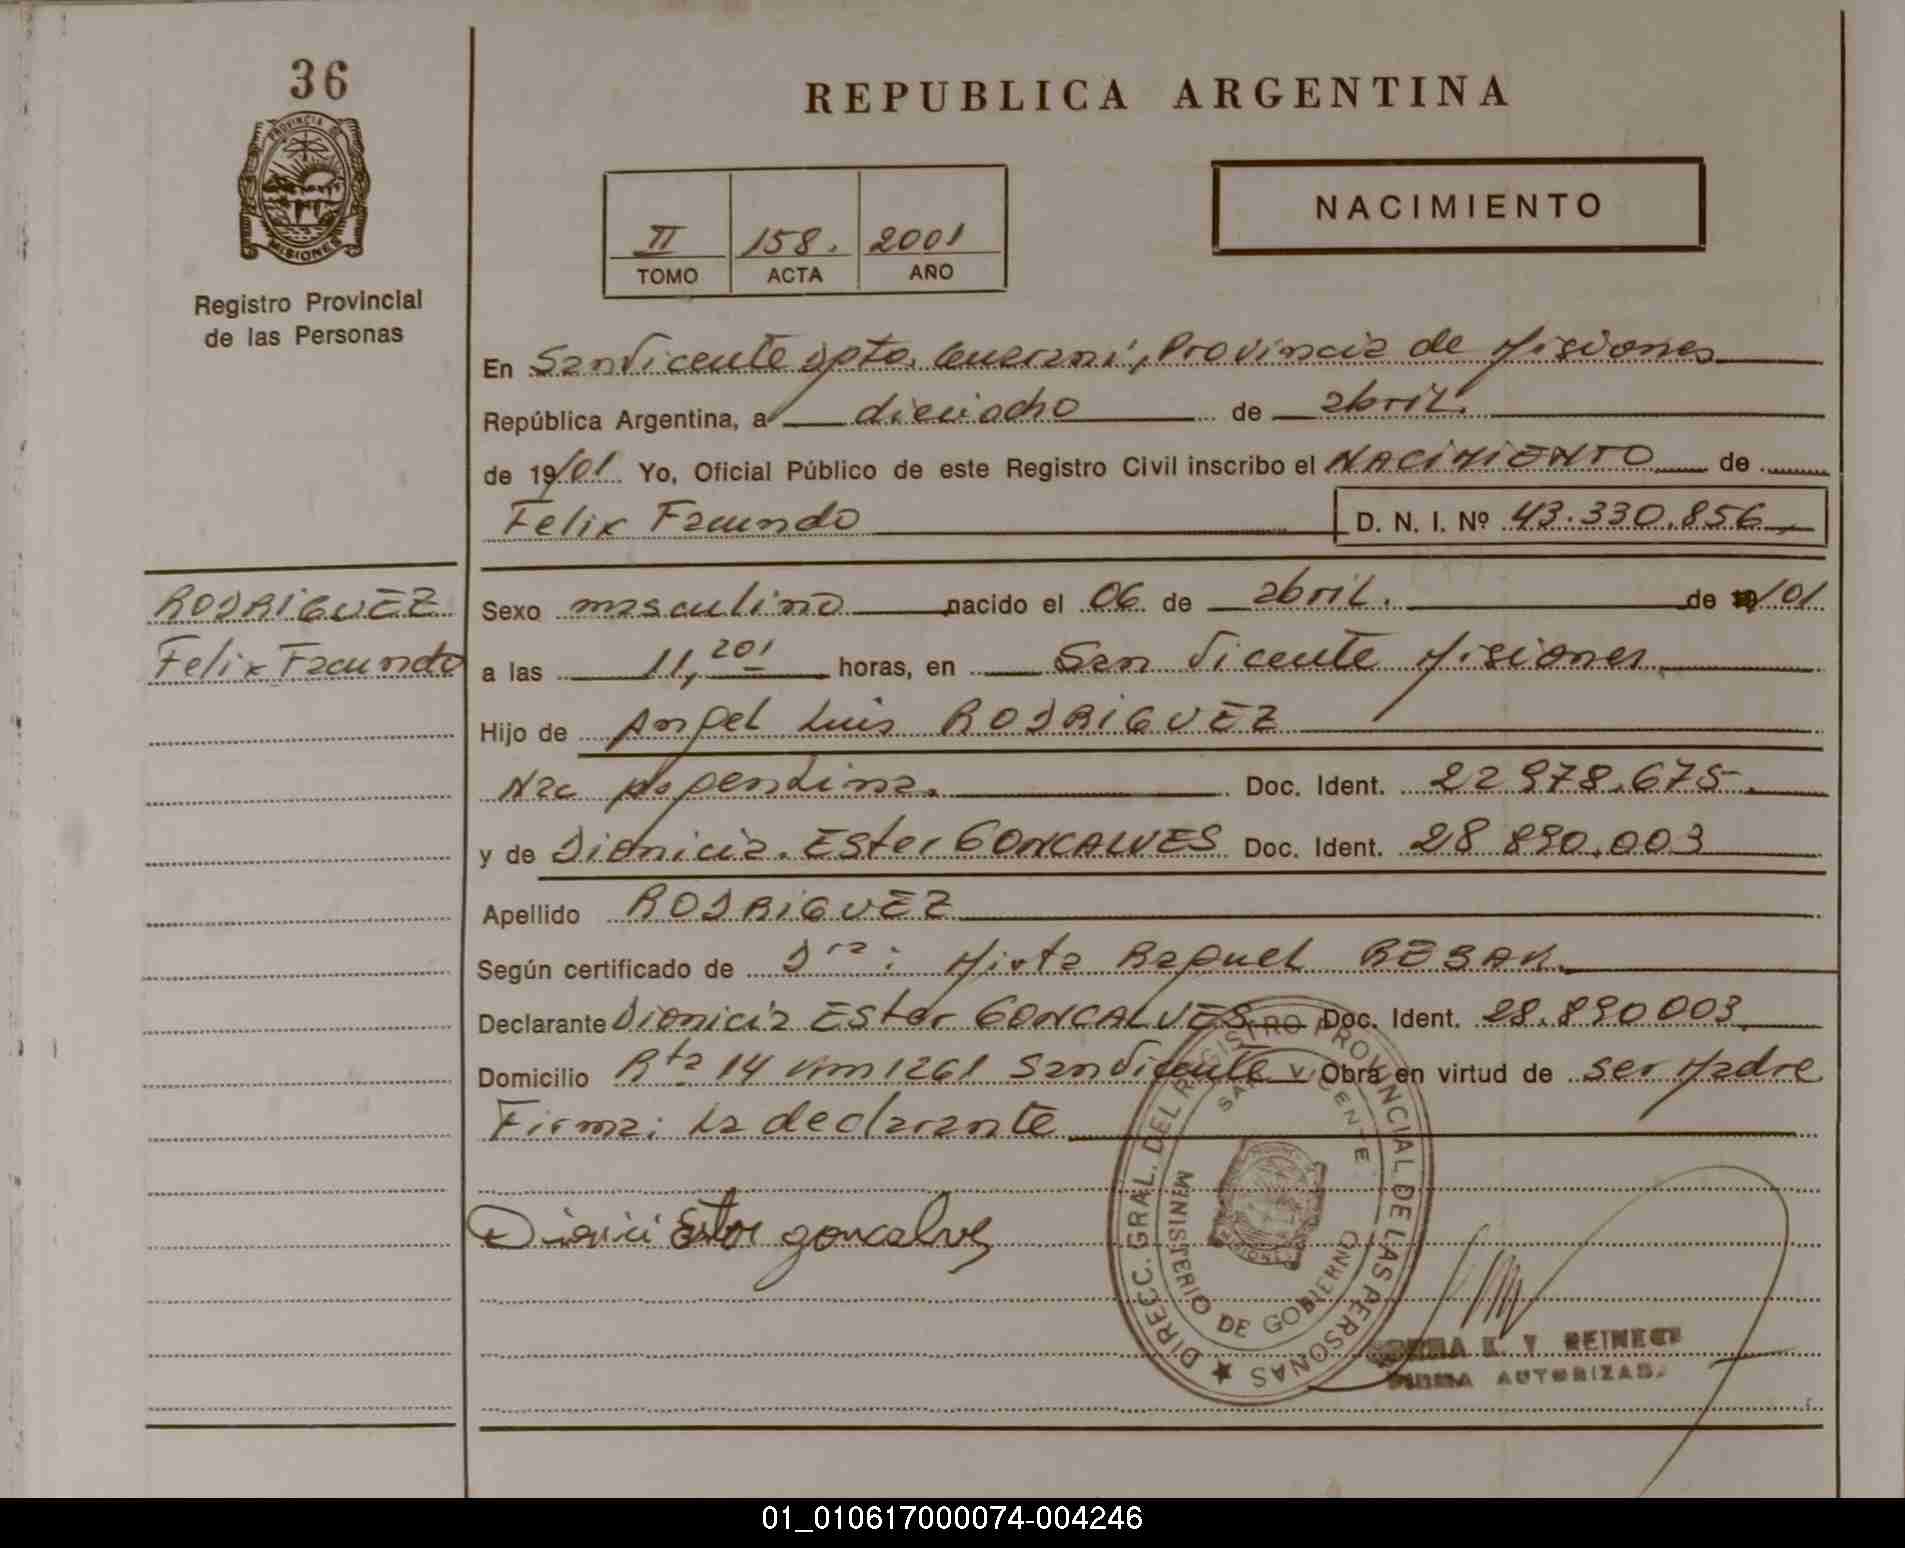 36
REPUBLICA ARGENTINA
PROVINCIA DE
MISIONES
NACIMIENTO
II 158. 2001
TOMO ACTA AÑO
Registro Provincial
de las Personas
En San Vicente Dpto. Guarani, Provincia de Misiones
República Argentina, a dieciocho de abril.
de 19/01 Yo, Oficial Público de este Registro Civil inscribo el NACIMIENTO de
Felix Facundo D. N. I. Nº 43.330.856
RODRIGUEZ
Felix Facundo
Sexo masculino nacido el 06 de abril. de 19/01
a las 11,20 horas, en San Vicente Misiones
Hijo de Angel Luis RODRIGUEZ
Nac Argentina. Doc. Ident. 22 978.675
y de Dionicia Ester GONCALVES Doc. Ident. 28 890.003
Apellido RODRIGUEZ
Según certificado de Dra: Mirta Raquel
Declarante Dionicia Ester GONCALVES Doc. Ident. 28.890 003
Domicilio Rta 14 Km 1261 San Vicente Obra en virtud de ser Madre
Firma: La declarante
Dionici Ester goncalves
DIRECC. GRAL. DEL REGISTRO PROVINCIAL DE LAS PERSONAS
SAN VICENTE
MINISTERIO DE GOBIERNO
MISIONES
FIRMA AUTORIZADA
01_010617000074-004246